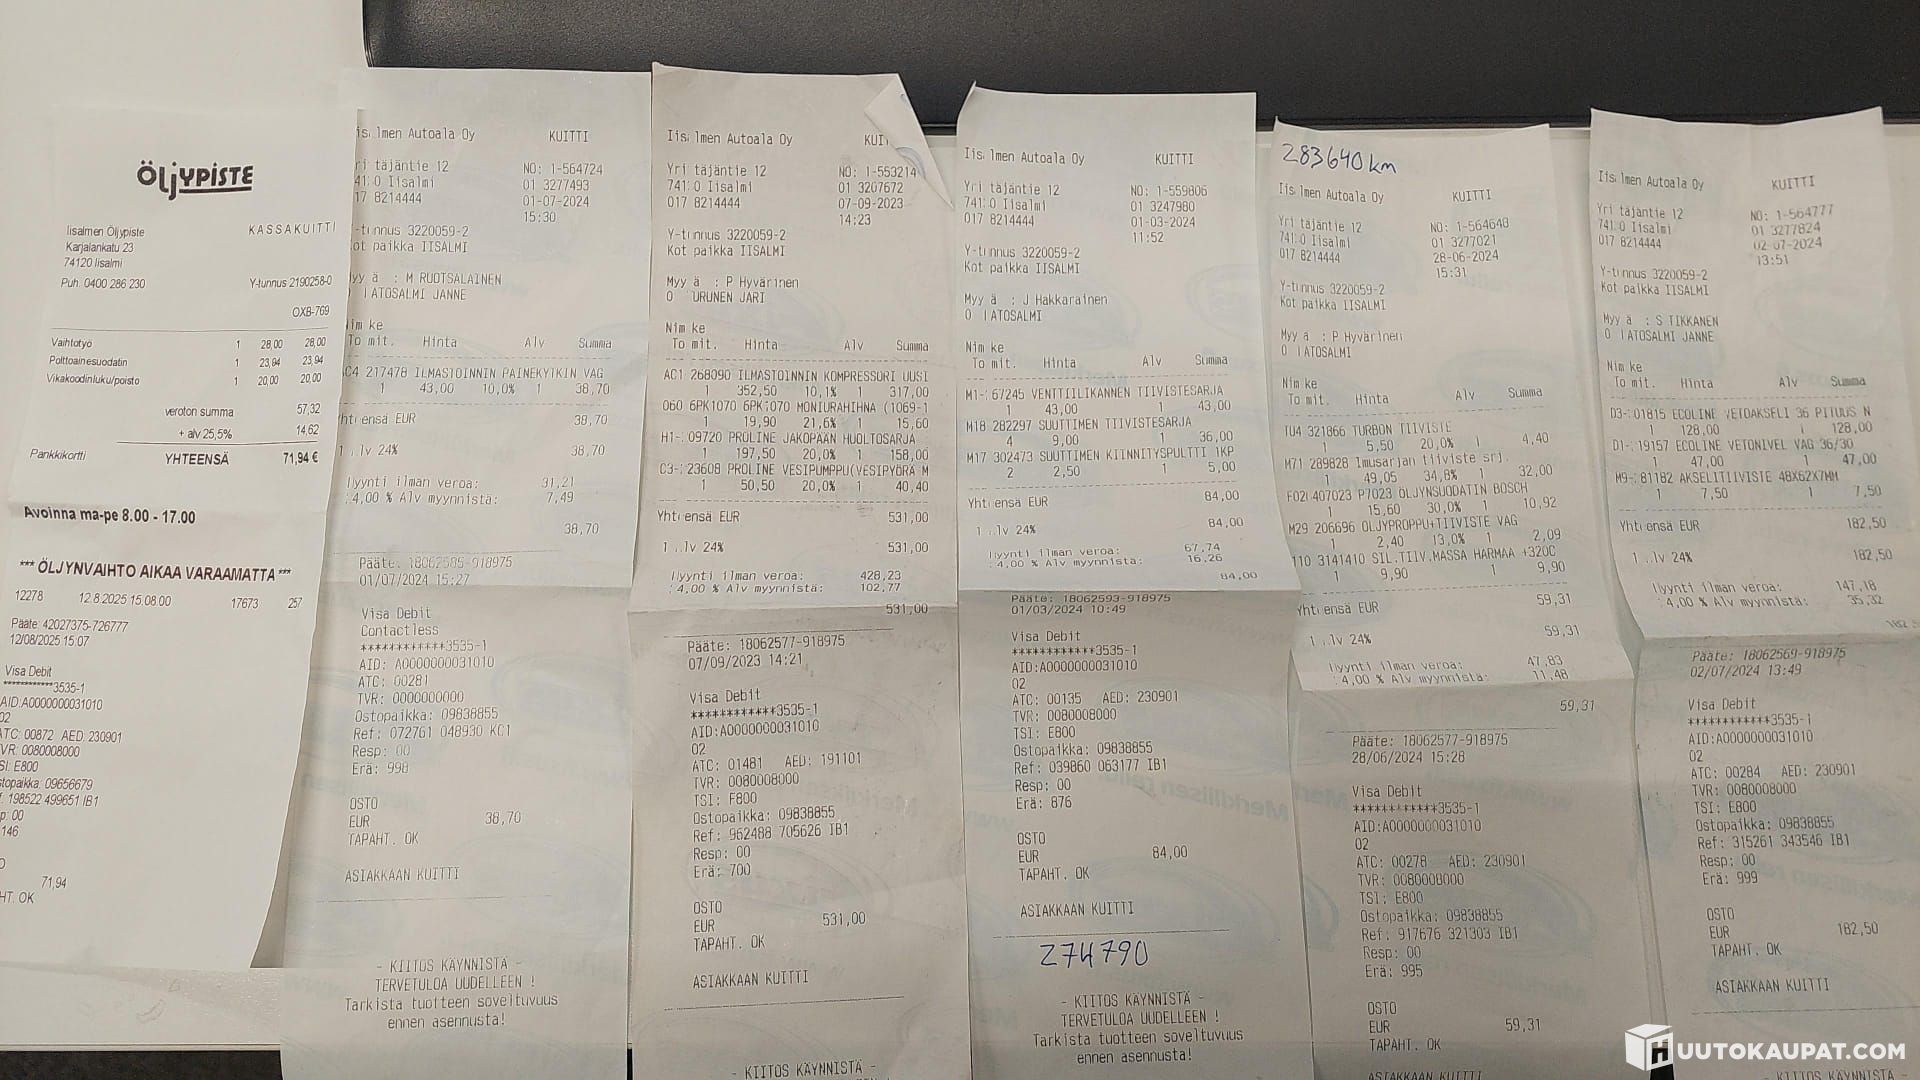 ÖLJYPISTE
Iisalmen Öljypiste KASSAKUITTI
Karjalankatu 23
74120 Iisalmi
Puh. 0400 286 230 Y-tunnus 2190258-0
OXB-769
Vaihtotyö 1 28,00 28,00
Polttoainesuodatin 1 23,94 23,94
Vikakoodinluku/poisto 1 20,00 20,00
veroton summa 57,32
+ alv 25,5% 14,62
Pankkikortti YHTEENSÄ 71,94 €
Avoinna ma-pe 8.00 - 17.00
*** ÖLJYNVAIHTO AIKAA VARAAMATTA ***
12278 12.8.2025 15.08.00 17673 257
Pääte: 42027375-726777
12/08/2025 15:07
Visa Debit
************3535-1
AID:A0000000031010
02
ATC: 00872 AED: 230901
TVR: 0080008000
TSI: E800
ostopaikka: 09656679
f: 198522 499651 IB1
p: 00
146
71,94
HT. OK
Iisalmen Autoala Oy KUITTI
Yrittäjäntie 12 NO: 1-564724
74130 Iisalmi 01 3277493
017 8214444 01-07-2024
15:30
Y-tunnus 3220059-2
Kotipaikka IISALMI
Myyjä : M RUOTSALAINEN
LATOSALMI JANNE
Nimike
Toimit. Hinta Alv Summa
AC4 217478 ILMASTOINNIN PAINEKYTKIN VAG
1 43,00 10,0% 1 38,70
Yhteensä EUR 38,70
1 Alv 24% 38,70
Myynti ilman veroa: 31,21
24,00 % Alv myynnistä: 7,49
38,70
Pääte: 18062585-918975
01/07/2024 15:27
Visa Debit
Contactless
************3535-1
AID: A0000000031010
ATC: 00281
TVR: 0000000000
Ostopaikka: 09838855
Ref: 072761 048930 KC1
Resp: 00
Erä: 998
OSTO
EUR 38,70
TAPAHT. OK
ASIAKKAAN KUITTI
- KIITOS KÄYNNISTÄ -
TERVETULOA UUDELLEEN !
Tarkista tuotteen soveltuvuus
ennen asennusta!
Iisalmen Autoala Oy KUIT
Yrittäjäntie 12 NO: 1-553214
74130 Iisalmi 01 3207672
017 8214444 07-09-2023
14:23
Y-tunnus 3220059-2
Kotipaikka IISALMI
Myyjä : P Hyvärinen
0 TURUNEN JARI
Nimike
Toimit. Hinta Alv Summa
AC1 268090 ILMASTOINNIN KOMPRESSORI UUSI
1 352,50 10,1% 1 317,00
060 6PK1070 6PK1070 MONIURAHIHNA (1069-1
1 19,90 21,6% 1 15,60
H1- 09720 PROLINE JAKOPÄÄN HUOLTOSARJA
1 197,50 20,0% 1 158,00
C3- 23608 PROLINE VESIPUMPPU(VESIPYÖRÄ M
1 50,50 20,0% 1 40,40
Yhteensä EUR 531,00
1 Alv 24% 531,00
Myynti ilman veroa: 428,23
24,00 % Alv myynnistä: 102,77
531,00
Pääte: 18062577-918975
07/09/2023 14:21
Visa Debit
************3535-1
AID:A0000000031010
02
ATC: 01481 AED: 191101
TVR: 0080008000
TSI: F800
Ostopaikka: 09838855
Ref: 962488 705626 IB1
Resp: 00
Erä: 700
OSTO
EUR 531,00
TAPAHT. OK
ASIAKKAAN KUITTI
- KIITOS KÄYNNISTÄ -
Iisalmen Autoala Oy KUITTI
Yrittäjäntie 12 NO: 1-559806
74130 Iisalmi 01 3247980
017 8214444 01-03-2024
11:52
Y-tunnus 3220059-2
Kotipaikka IISALMI
Myyjä : J Hakkarainen
0 LATOSALMI
Nimike
Toimit. Hinta Alv Summa
M1- 67245 VENTTIILIKANNEN TIIVISTESARJA
1 43,00 1 43,00
M18 282297 SUUTTIMEN TIIVISTESARJA
4 9,00 1 36,00
M17 302473 SUUTTIMEN KIINNITYSPULTTI 1KP
2 2,50 1 5,00
Yhteensä EUR 84,00
1 Alv 24% 84,00
Myynti ilman veroa: 67,74
24,00 % Alv myynnistä: 16,26
84,00
Pääte: 18062593-918975
01/03/2024 10:49
Visa Debit
************3535-1
AID:A0000000031010
02
ATC: 00135 AED: 230901
TVR: 0080008000
TSI: E800
Ostopaikka: 09838855
Ref: 039860 063177 IB1
Resp: 00
Erä: 876
OSTO
EUR 84,00
TAPAHT. OK
ASIAKKAAN KUITTI
274790
- KIITOS KÄYNNISTÄ -
TERVETULOA UUDELLEEN !
Tarkista tuotteen soveltuvuus
ennen asennusta!
283640 km
Iisalmen Autoala Oy KUITTI
Yrittäjäntie 12 NO: 1-564648
74130 Iisalmi 01 3277021
017 8214444 28-06-2024
15:31
Y-tunnus 3220059-2
Kotipaikka IISALMI
Myyjä : P Hyvärinen
0 LATOSALMI
Nimike
Toimit. Hinta Alv Summa
TU4 321866 TURBON TIIVISTE
1 5,50 20,0% 1 4,40
M71 289828 Imusarjan tiiviste srj.
1 49,05 34,8% 1 32,00
F02 407023 P7023 ÖLJYNSUODATIN BOSCH
1 15,60 30,0% 1 10,92
M29 206696 ÖLJYPROPPU+TIIVISTE VAG
1 2,40 13,0% 1 2,09
110 3141410 SIL.TIIV.MASSA HARMAA +320C
1 9,90 1 9,90
Yhteensä EUR 59,31
1 Alv 24% 59,31
Myynti ilman veroa: 47,83
24,00 % Alv myynnistä: 11,48
59,31
Pääte: 18062577-918975
28/06/2024 15:28
Visa Debit
************3535-1
AID:A0000000031010
02
ATC: 00278 AED: 230901
TVR: 0080008000
TSI: E800
Ostopaikka: 09838855
Ref: 917676 321303 IB1
Resp: 00
Erä: 995
OSTO
EUR 59,31
TAPAHT. OK
ASIAKKAAN KUITTI
Iisalmen Autoala Oy KUITTI
Yrittäjäntie 12 NO: 1-564777
74130 Iisalmi 01 3277824
017 8214444 02-07-2024
13:51
Y-tunnus 3220059-2
Kotipaikka IISALMI
Myyjä : S TIKKANEN
0 LATOSALMI JANNE
Nimike
Toimit. Hinta Alv Summa
D3- 01815 ECOLINE VETOAKSELI 36 PITUUS N
1 128,00 1 128,00
D1- 19157 ECOLINE VETONIVEL VAG 36/30
1 47,00 1 47,00
M9- 81182 AKSELITIIVISTE 48X62X7MM
1 7,50 1 7,50
Yhteensä EUR 182,50
1 Alv 24% 182,50
Myynti ilman veroa: 147,18
24,00 % Alv myynnistä: 35,32
Pääte: 18062569-918975
02/07/2024 13:49
Visa Debit
************3535-1
AID:A0000000031010
02
ATC: 00284 AED: 230901
TVR: 0080008000
TSI: E800
Ostopaikka: 09838855
Ref: 315261 343546 IB1
Resp: 00
Erä: 999
OSTO
EUR 182,50
TAPAHT. OK
ASIAKKAAN KUITTI
HUUTOKAUPAT.COM